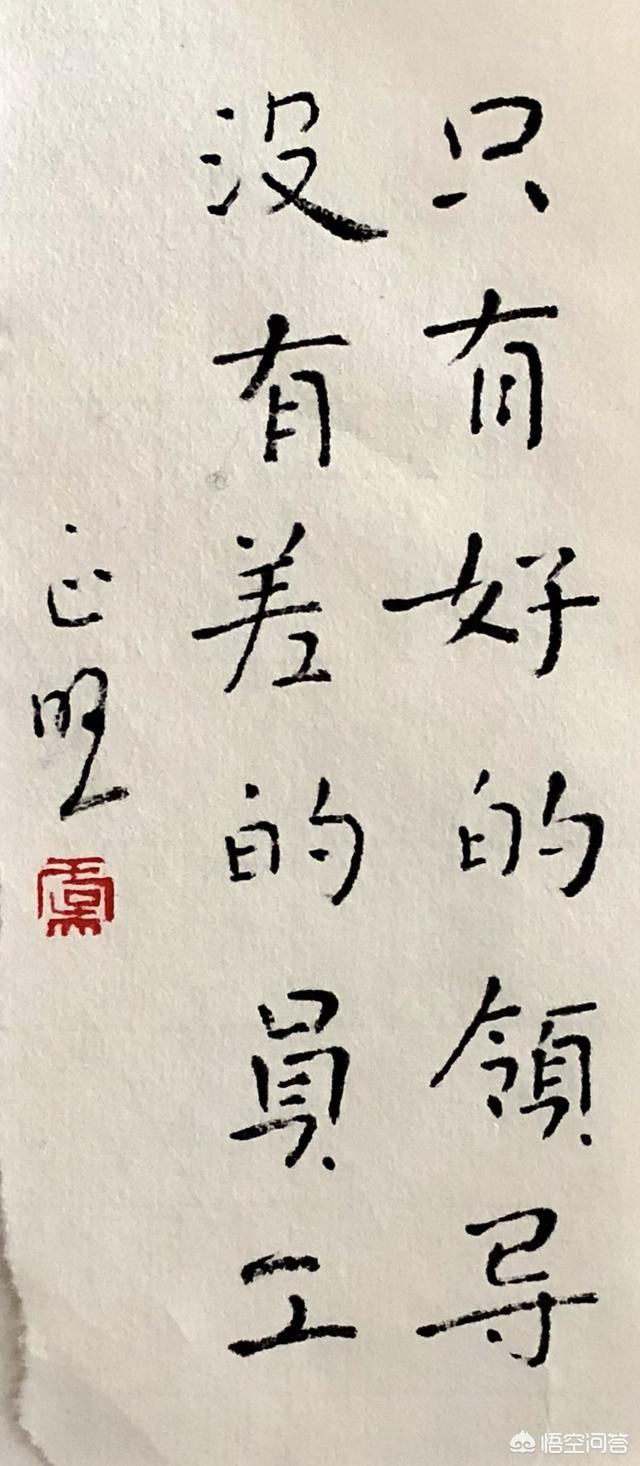 只有好的領导
没有差的員工
正明
悟空问答